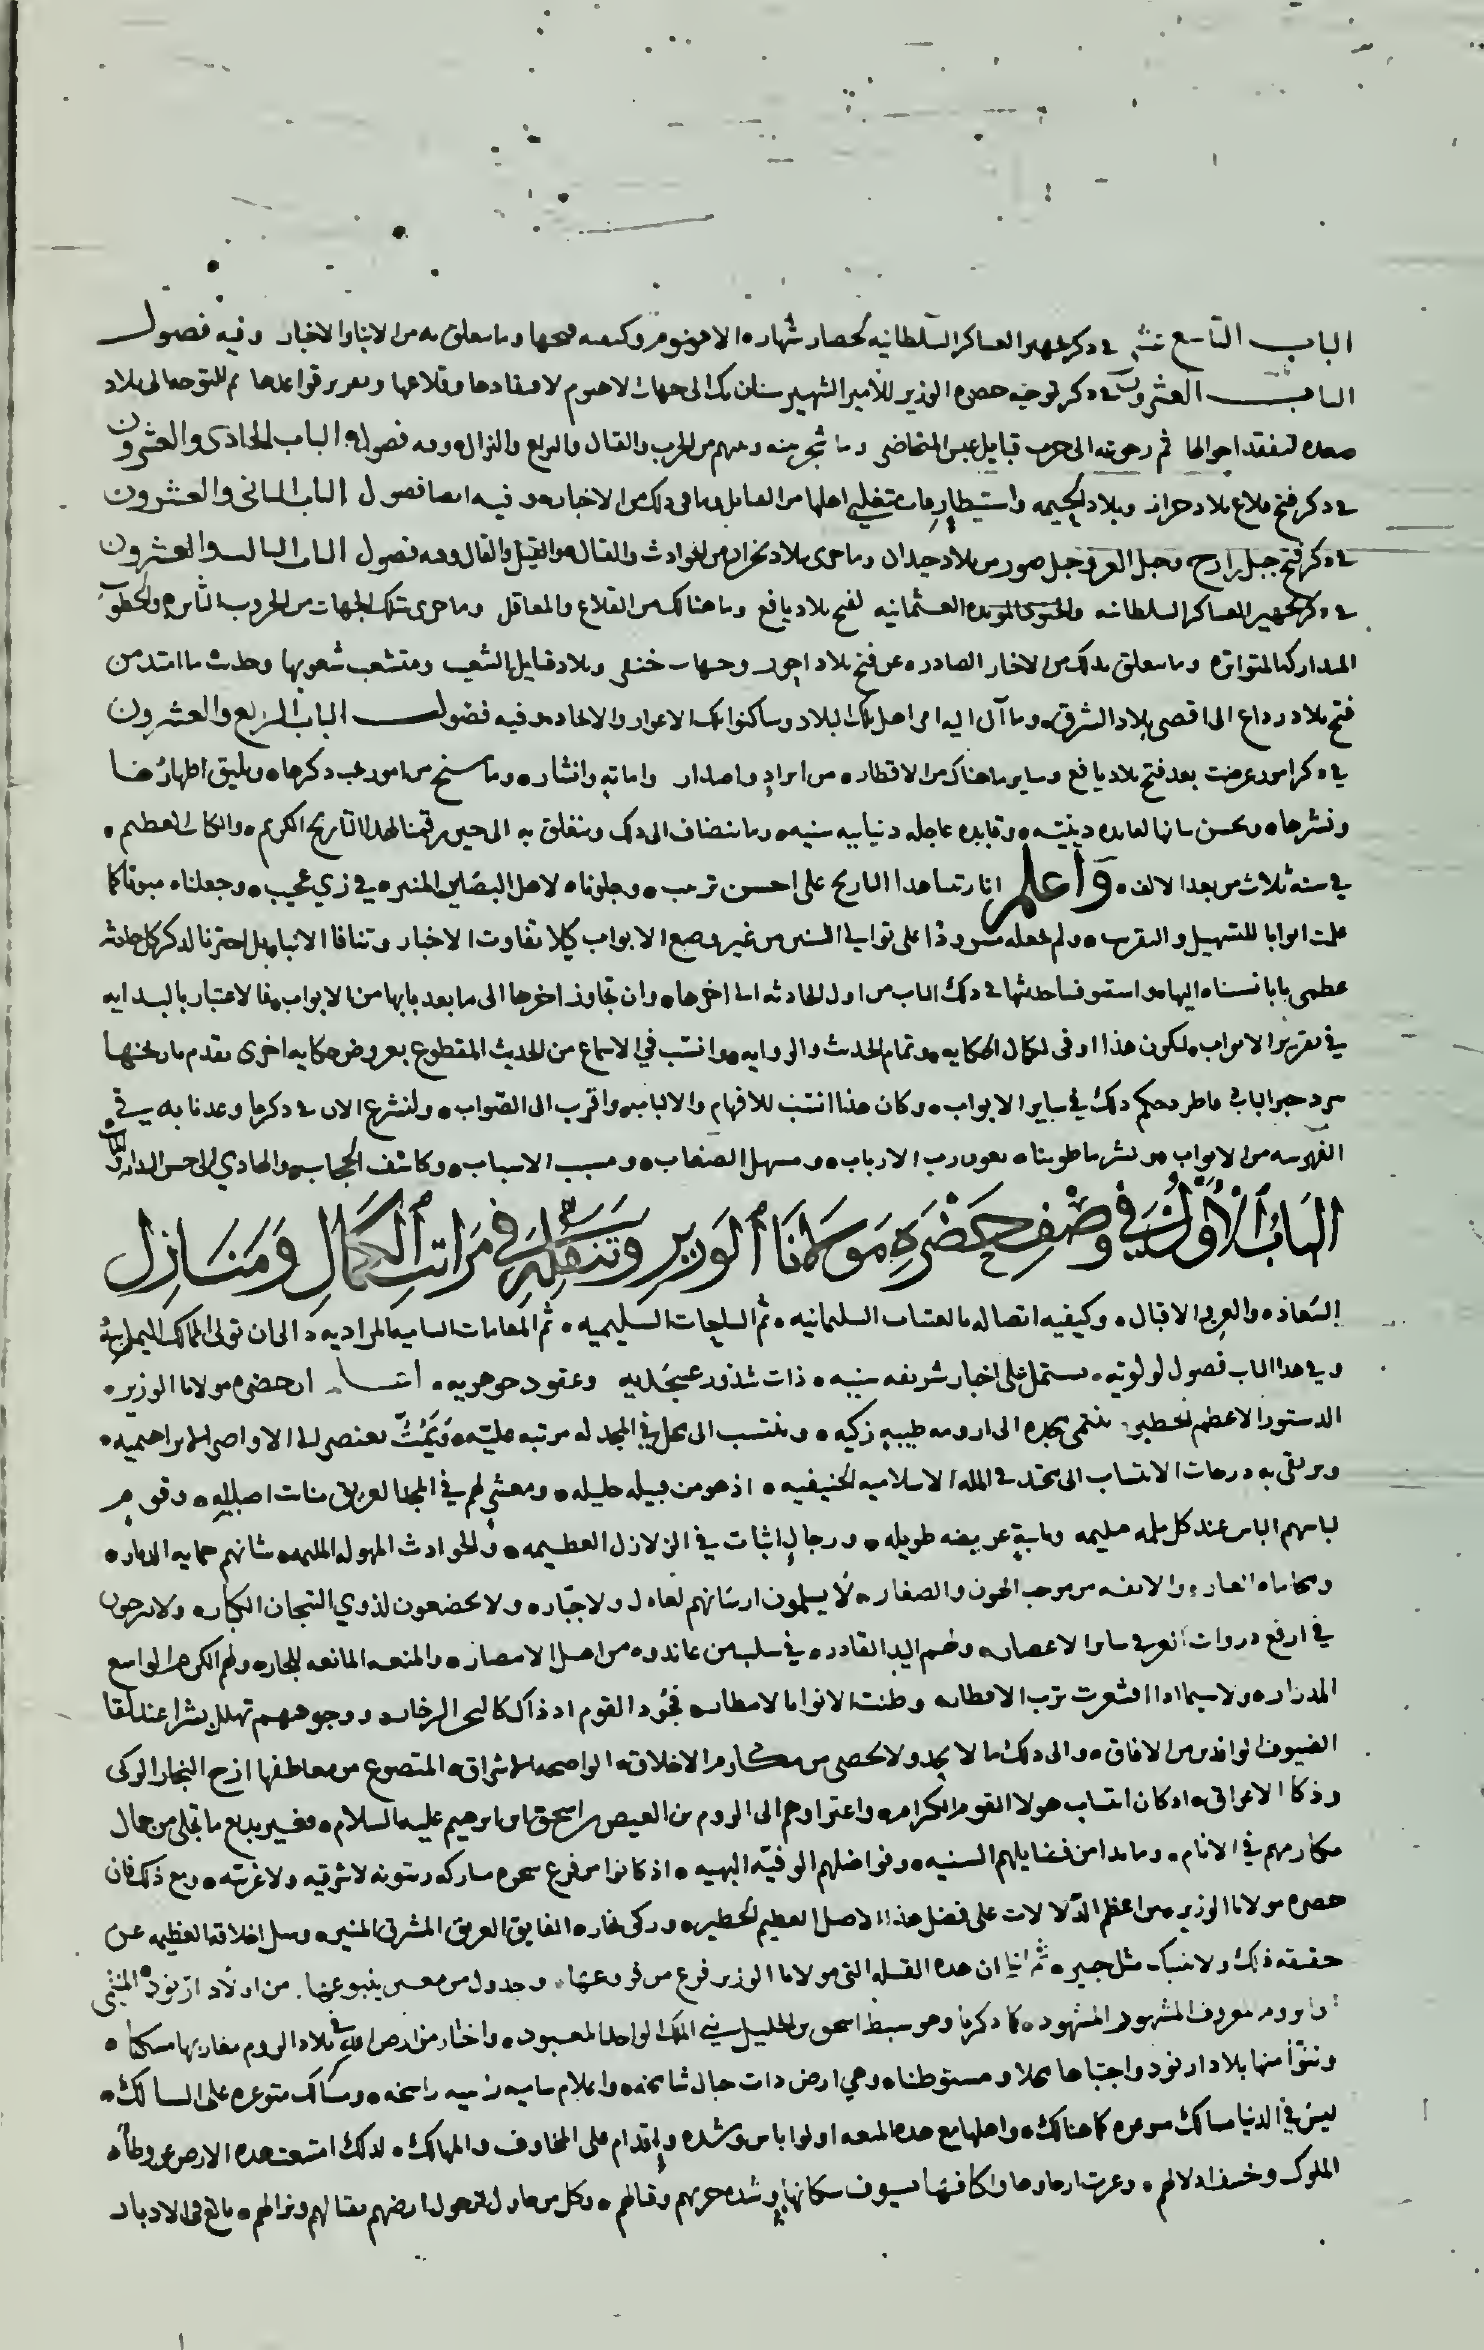 الباب التاسع عشر في ذكر تجهيز العساكر السلطانيه لحصار شهاره الاهنوم وكيفيه فتحها وما يتعلق به من الانباء والاخبار وفيه فصول
الباب العشرون في ذكر توجيه حضره الوزير للامير الشهير سنان بك الى جهات الاهنوم لافتقادها وقلاعها وتقرير قواعدها ثم التوجه الى بلاد
صعده لتفقد احوالها ثم رجوعه الى حرب قبايل عبس وما شجر بينه وبينهم من الحرب والقتال والنزال وفيه فصول الباب الحادي والعشرون
في ذكر فتح قلاع بلاد حراز وبلاد الحيمه واهلها من القبايل وما في ذلك من الاخبار وفيه ايضا فصول الباب الثاني والعشرون
في ذكر فتح جبل رازح وجبل العر وجبل صور من بلاد حيدان وما جرى ببلاد نجران من الحوادث والقتال والقيل والقال وفيه فصول الباب الثالث والعشرون
في ذكر تجهيز العساكر السلطانيه والجنود المؤيده العثمانيه لفتح بلاد يافع وما هنالك من القلاع والمعاقل وما جرى بتلك الجهات من الحروب والخطوب
المتداركه المتواتره وما يتعلق بذلك من الاخبار الصادره عن فتح بلاد احور وجهات خنفر وبلاد قبايل الشعيب ومتشعب شعوبها وحدث ما امتد من
فتح بلاد رداع الى اقصى بلاد الشرق وما آل اليه امر اهل تلك البلاد وساكنوا تلك الاغوار والانجاد وفيه فصول الباب الرابع والعشرون
في ذكر امور عرضت بعد فتح بلاد يافع وساير ما هناك من الاقطار من ايراد واصدار واماته وانشار وما سنح من امور يجب ذكرها ويليق اظهارها
ونشرها ويحسن بيانها لفايده دينيه وفايده عاجله دنياييه سنيه وما ينضاف الى ذلك ويتعلق به الى حين رقمنا لهذا التاريخ الكريم والكتاب العظيم
في سنه ثلاث من بعد الالف واعلم انا رتبنا هذا التاريخ على احسن ترتيب وجلوناه لاهل البصاير المنيره في زي عجيب وجعلناه مبوبا كما
علمت ابوابا للتسهيل والتقريب ولم نجعله مسرودا على توالي السنين من غير وضع الابواب كيلا يتفاوت الاخبار وتنافا الانباء بل اخترنا لذكر كل حادثه
عظمى بابا نسبناه اليها واستوفينا حديثها في ذلك الباب من اول الحادثه الى اخرها وان تجاوز اخرها الى ما بعد بابها من الابواب فالاعتبار بالبدايه
في تقرير الابواب ليكون هذا اوفى لكمال الحكايه وتمام الحديث والروايه وانسب في الاسماع من الحديث المقطوع بعروض حكايه اخرى تقدم تاريخها
حكم ذلك في ساير الابواب وكان هذا انسب للافهام والالباب واقرب الى الصواب ولنشرع الان في ذكر ما وعدنا به في
الفهرسه من الابواب ونشر ما طويناه بعون رب الارباب ومسهل الصعاب ومسبب الاسباب وكاشف الحجاب والهادي الى
الباب الاول في وصف حضره مولانا الوزير وتنقله في مراتب الكمال ومنازل
السعاده والعز والاقبال وكيفيه اتصاله بالعتبات السليمانيه ثم السليميه ثم المقامات الساميه المراديه الى ان تولى الممالك اليمانيه
وفي هذا الباب فصول لولويه يشتمل على اخبار شريفه سنيه ذات شذور عسجديه وعقود جوهريه ان حضره مولانا الوزير
الدستور الاعظم الخطير ينتمي الى ارومه طيبه زكيه وينتسب الى في المجد له مرتبه عليه ويمت بعنصر الى الاواصر الابراهيميه
ويرتقي به درجات الانتساب الى محتد في المله الاسلاميه الحنيفيه اذ هو من قبيله جليله ومعشر لهم في المجد اصيله وقوم هم
لباسهم الباس عند كل ملمه عريضه طويله ورجال اثبات في الزلازل العظيمه والحوادث المهوله الملمه شانهم حمايه الذمار
ومحاماه العار والانفه من موجب الهون والصغار لا يسلمون ارسانهم لعادل ولا جبار ولا يخضعون لذوي التيجان الكبار ولا يبرحون
في ارفع ذروات العز في ساير الاعصار ولهم اليد القادره في سلب من عاندوه من اهل الامصار والمنعه المانعه للجار ولهم الكرم الواسع
المدرار ولا سيما اذا اقشعرت ترب الاقطار وظنت الانواء بالامطار فجود القوم اذ ذاك كالبحر الزخار ووجوههم تهلل بشرا عند لقاء
الضيوف من الافاق والى ذلك ما لا يعد ولا يحصى من مكارم الاخلاق الواضحه الاشراق المتضوع من معاطفها ارج النجار الزكي
وذكا الاعراق اذ كان انتساب هولا القوم الكرام واعتزاوهم الى الروم بن العيص بن اسحق بن ابرهيم عليه السلام فغير بديع ما تجلى من جمال
مكارمهم في الانام وما بدا من فضايلهم السنيه وفواضلهم الوفيه البهيه اذ كانوا من فرع شجره مباركه زيتونه لا شرقيه ولا غربيه ومع ذلك فان
حضره مولانا الوزير من اعظم الدلالات على فضل هذا الاصل العظيم الخطير وزكى نجاره الفايق العريق المشرق المنير وسل اخلاقه العظيمه عن
حقيقه ذلك ولا ينبئك مثل خبير ثم ان هذه القبيله التي مولانا الوزير فرع من فروعها وجدول من معين ينبوعها من اولاد ارنود
المعروف المشهور المشهود كما ذكرنا وهو سبط اسحق بن الخليل نبي الملك الواحد المعبود واختار من ارض الله في بلاد الروم مغاربها مسكنا
وتبوأ منها بلاد ارنود واجتباها محلا ومستوطنا وهي ارض ذات جبال شامخه واعلام ساميه راسيه راسخه ومسالك متوعره على السالك
ليس في الدنيا مسالك متوعره كما هنالك واهلها مع هذه المنعه اولوا باس وشده واقدام على المخاوف والمهالك لذلك امتنعت هذه الارض عن وطأه
الملوك وعزت ارجاوها واكنافها بسيوف سكانها وشده حربهم وقتالهم وكل من حاول ارضهم بقتالهم ونزالهم